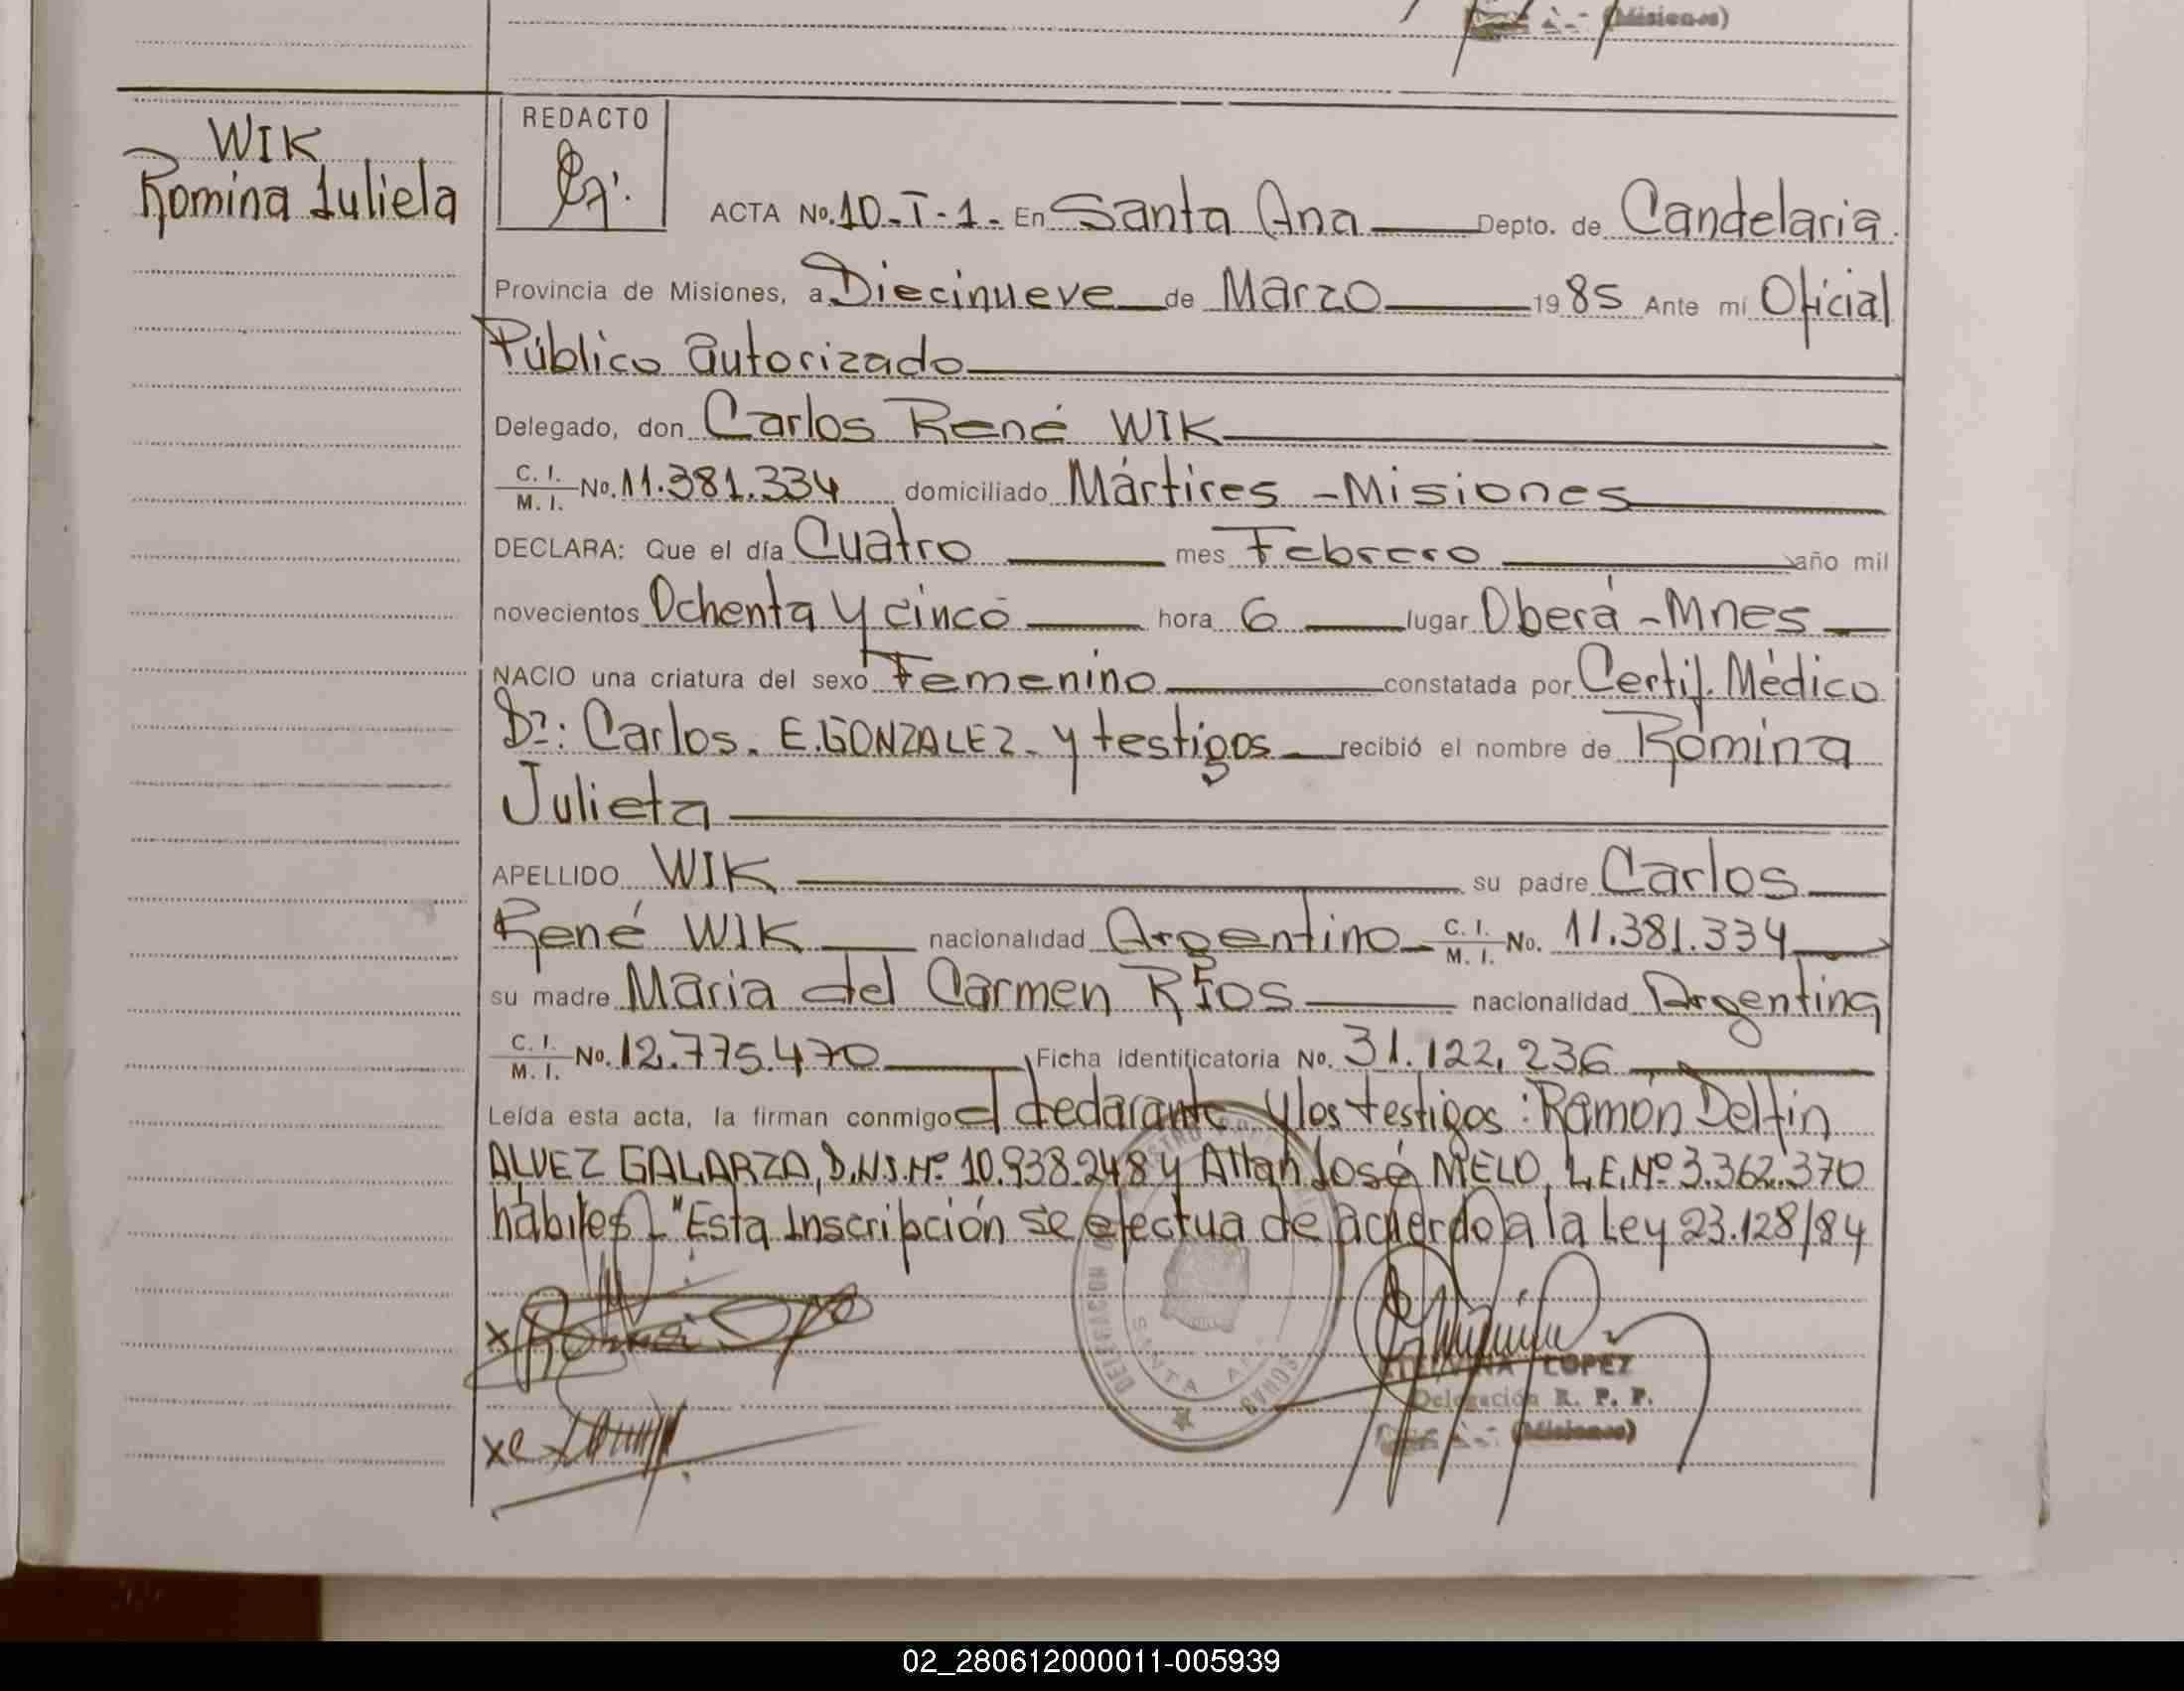 (Misiones)
WIK
Romina Iuliela
REDACTO
ACTA No. 10-I-1- En Santa Ana Depto. de Candelaria.
Provincia de Misiones, a Diecinueve de Marzo 1985 Ante mí Oficial
Público autorizado
Delegado, don Carlos René WIK
C. I. / M. I. No. 11.381.334 domiciliado Mártires - Misiones
DECLARA: Que el día Cuatro mes Febrero año mil
novecientos Ochenta y cinco hora 6 lugar Oberá - Mnes
NACIO una criatura del sexo Femenino constatada por Certif. Médico
Dr: Carlos. E. GONZALEZ. y testigos recibió el nombre de Romina
Julieta
APELLIDO WIK su padre Carlos
René WIK nacionalidad Argentino C. I. / M. I. No. 11.381.334
su madre Maria del Carmen Ríos nacionalidad Argentina
C. I. / M. I. No. 12.775.470 Ficha identificatoria No. 31.122.236
Leída esta acta, la firman conmigo el dedarante y los testigos: Ramón Delfin
ALVEZ GALARZA, D.N.I. Nº 10.938.248 y Allan José MELO, L.E. Nº 3.362.370
hábiles - "Esta Inscripción se efectua de acuerdo a la Ley 23.128/84
DELEGACION
SANTA ANA
LOPEZ
Delegación R. P. P.
(Misiones)
02_280612000011-005939